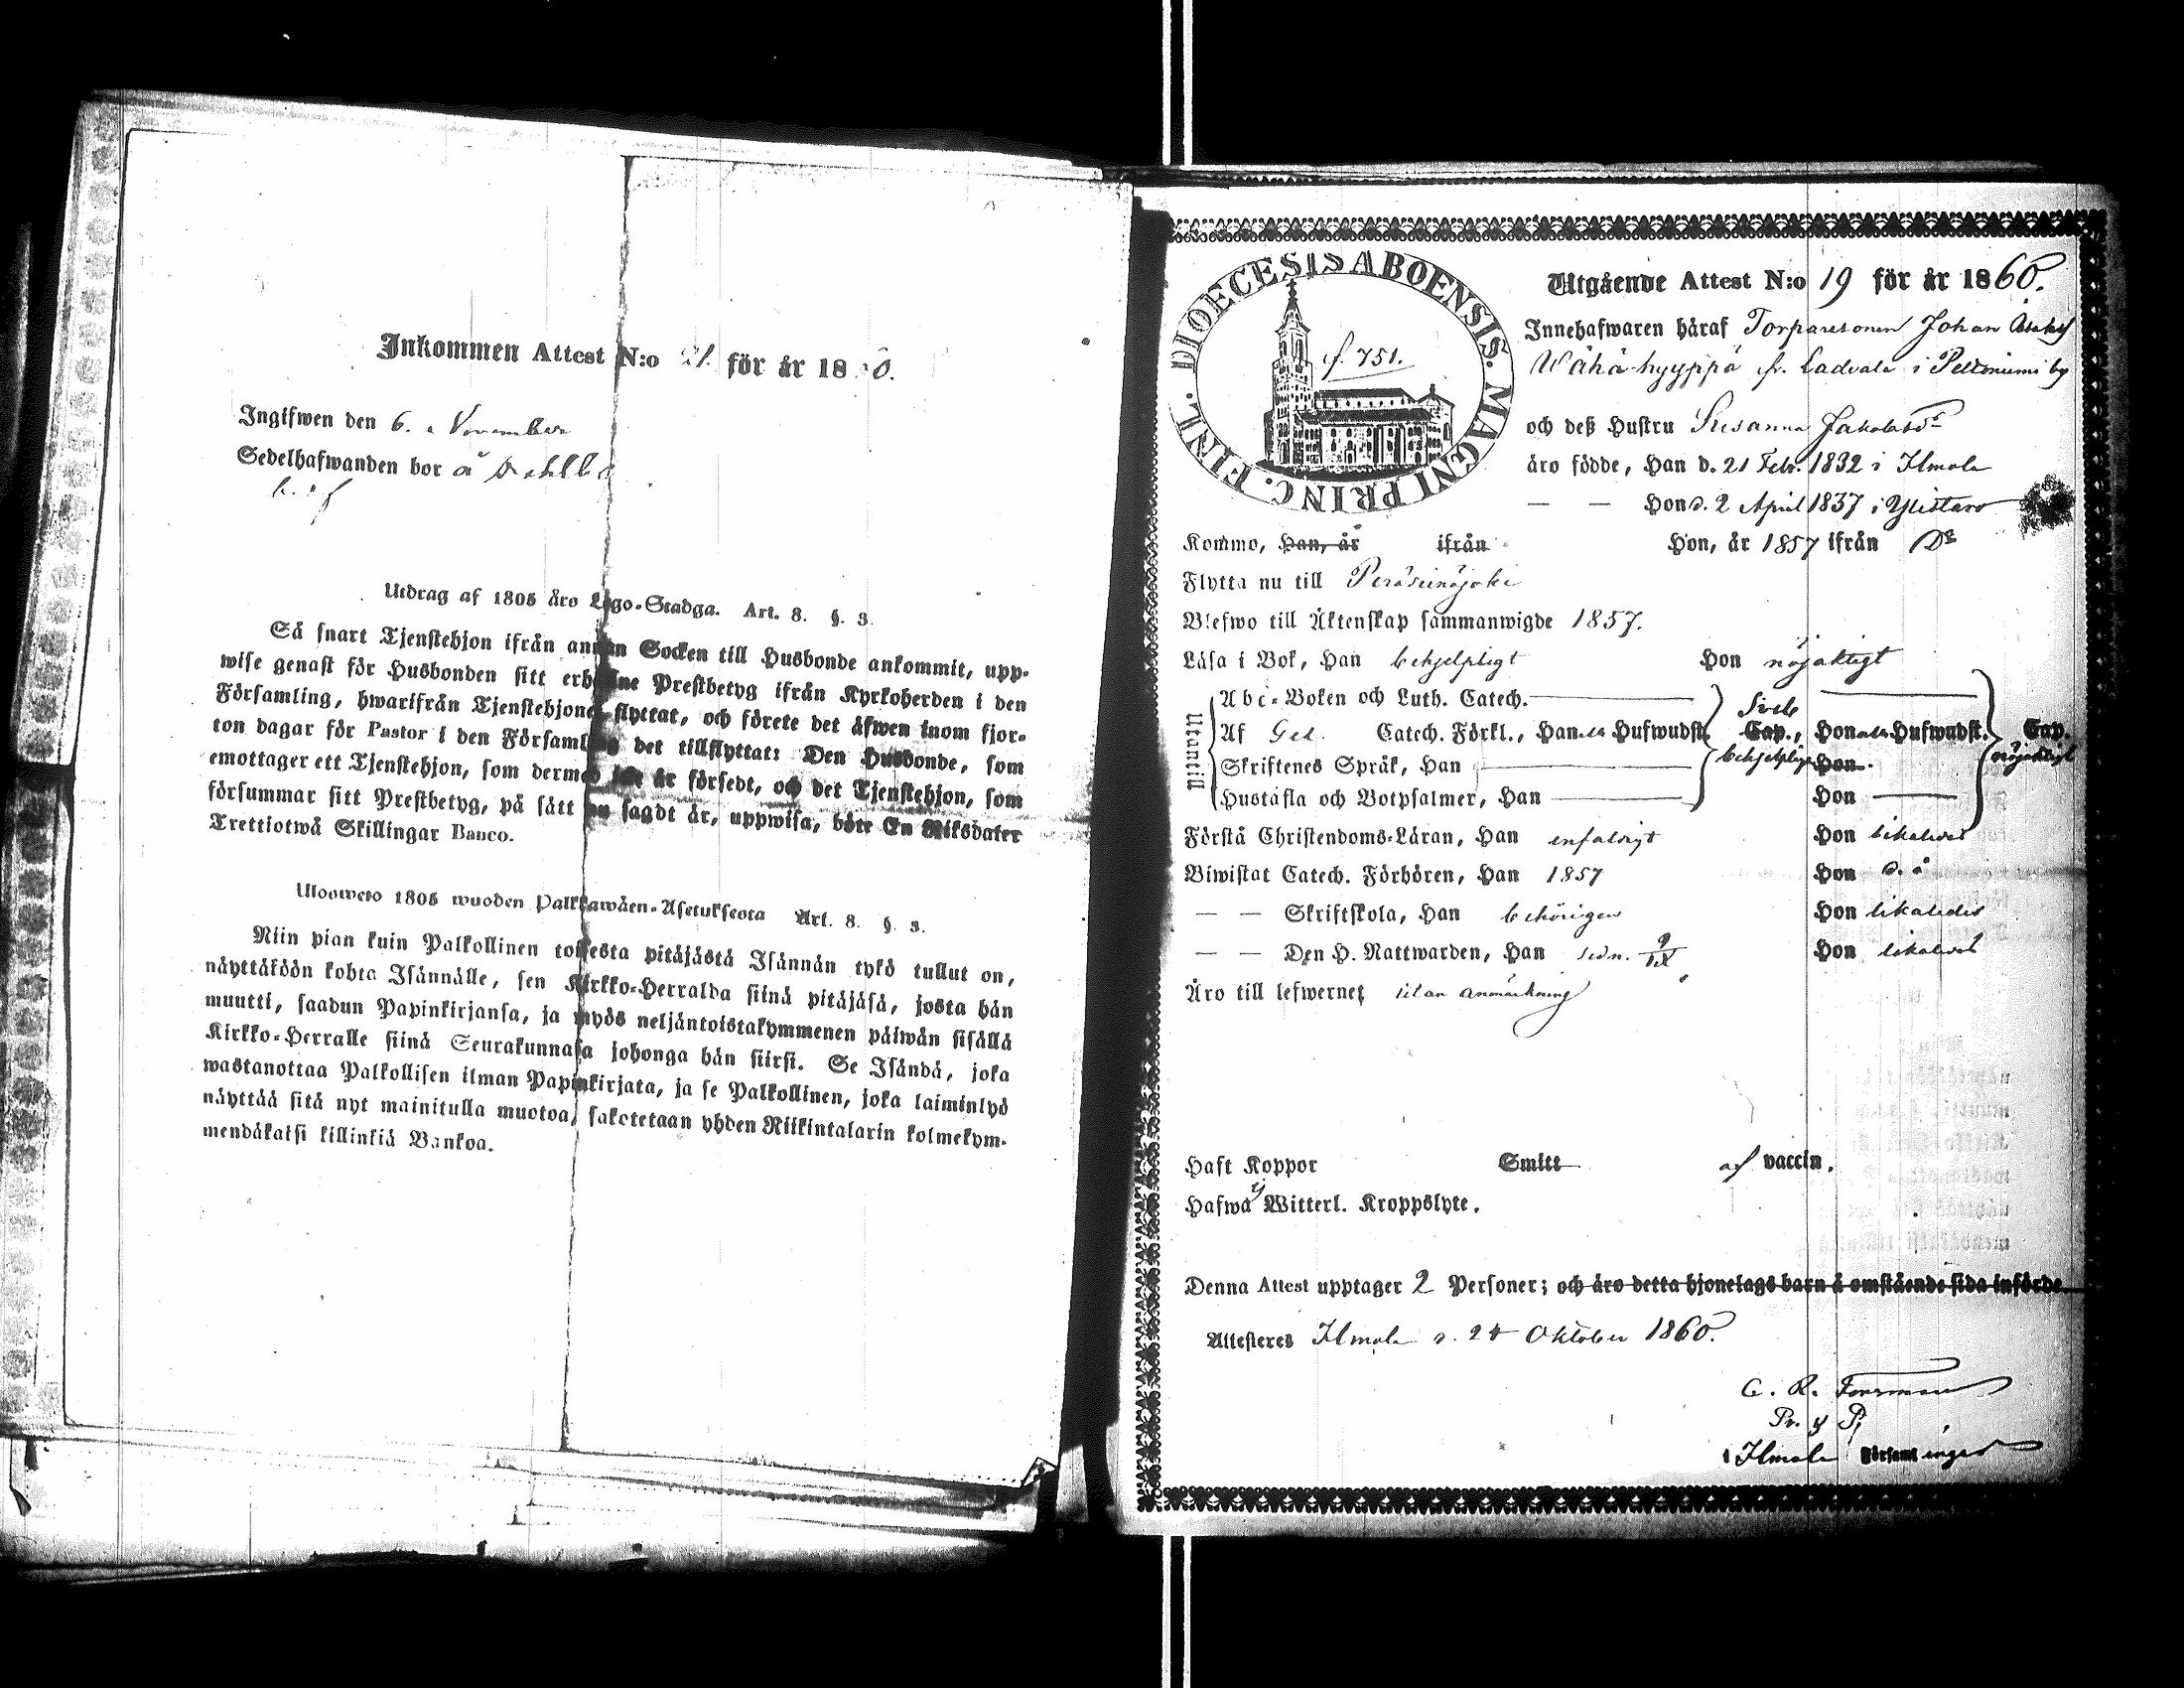 Inkommen Attest N:o 21. för år 18 0.
Ingifwen den 6. November
Sedelhafwanden bor å
Utdrag af 1805 års Lego-Stadga. Art. 8. §. 3.
Så snart Tjenstehjon ifrån annan Socken till Husbonde ankommit, upp-
wise genast för Husbonden sitt erhållne Prestbetyg ifrån Kyrkoherden i den
Församling, hwarifrån Tjenstehjonet flyttat, och förete det äfwen inom fjor-
ton dagar för Pastor i den Församling det tillflyttat: Den Husbonde, som
emottager ett Tjenstehjon, som dermed icke är försedt, och det Tjenstehjon, som
försummar sitt Prestbetyg, på sätt nu sagdt är, uppwisa, böte En Riksdaler
Trettiotwå Skillingar Banco.
Ulosweto 1805 wuoden Palkkawäen-Asetuksesta Art. 8. §. 3.
Niin pian kuin Palkollinen toisesta pitäjästä Isännän tykö tullut on,
näyttäköön kohta Isännälle, sen Kirkko-Herralda siinä pitäjäsä, josta hän
muutti, saadun Papinkirjansa, ja myös neljäntoistakymmenen päiwän sisällä
Kirkko-Herralle siinä Seurakunnasa johonga hän siirsi. Se Isändä, joka
wastanottaa Palkollisen ilman Papinkirjata, ja se Palkollinen, joka laiminlyö
näyttää sitä nyt mainitulla muotoa, sakotetaan yhden Riikintalarin kolmekym-
mendäkaksi killinkiä Bankoa.
DIOECESIS ABOENSIS. MAGNI PRINC. FINL.
f. 751.
Utgående Attest N:o 19 för år 1860.
Innehafwaren häraf Torparesonen Johan
Wähä-hyyppä fr. Ladvala i Peltoniemi by
och deß Hustru Susanna Jakobsdr
äro födde, Han d. 21 Febr. 1832 i Ilmola
— — Hon d. 2 April 1837 i Ylistaro
Kommo, Han, år ifrån Hon, år 1857 ifrån Do
Flytta nu till Peräseinäjoki
Blefwo till Äktenskap sammanwigde 1857.
Läsa i Bok, Han behjelpligt Hon nöjaktigt
Utantill
Abc-Boken och Luth. Catech.
Af Catech. Förkl., Han Hufwudst. Cap., Hon Hufwudst. Cap.
behjelpligt nöjaktigt
Skriftenes Språk, Han Hon
Hustafla och Botpsalmer, Han Hon
Förstå Christendoms-Läran, Han enfaldigt Hon likaledes
Biwistat Catech. Förhören, Han 1857 Hon d. å
— — Skriftskola, Han behörigen Hon likaledes
— — Den H. Nattwarden, Han sedn. Hon likaledes
Äro till lefwernet utan anmärkning
Haft Koppor Smitt af vaccin.
Hafwa ej Witterl. Kroppslyte.
Denna Attest upptager 2 Personer; och äro detta hjonelags barn å omstående sida införde.
Attesteras Ilmola d. 24 Oktober 1860.
C. R. Forsman
i Ilmola Församlingar